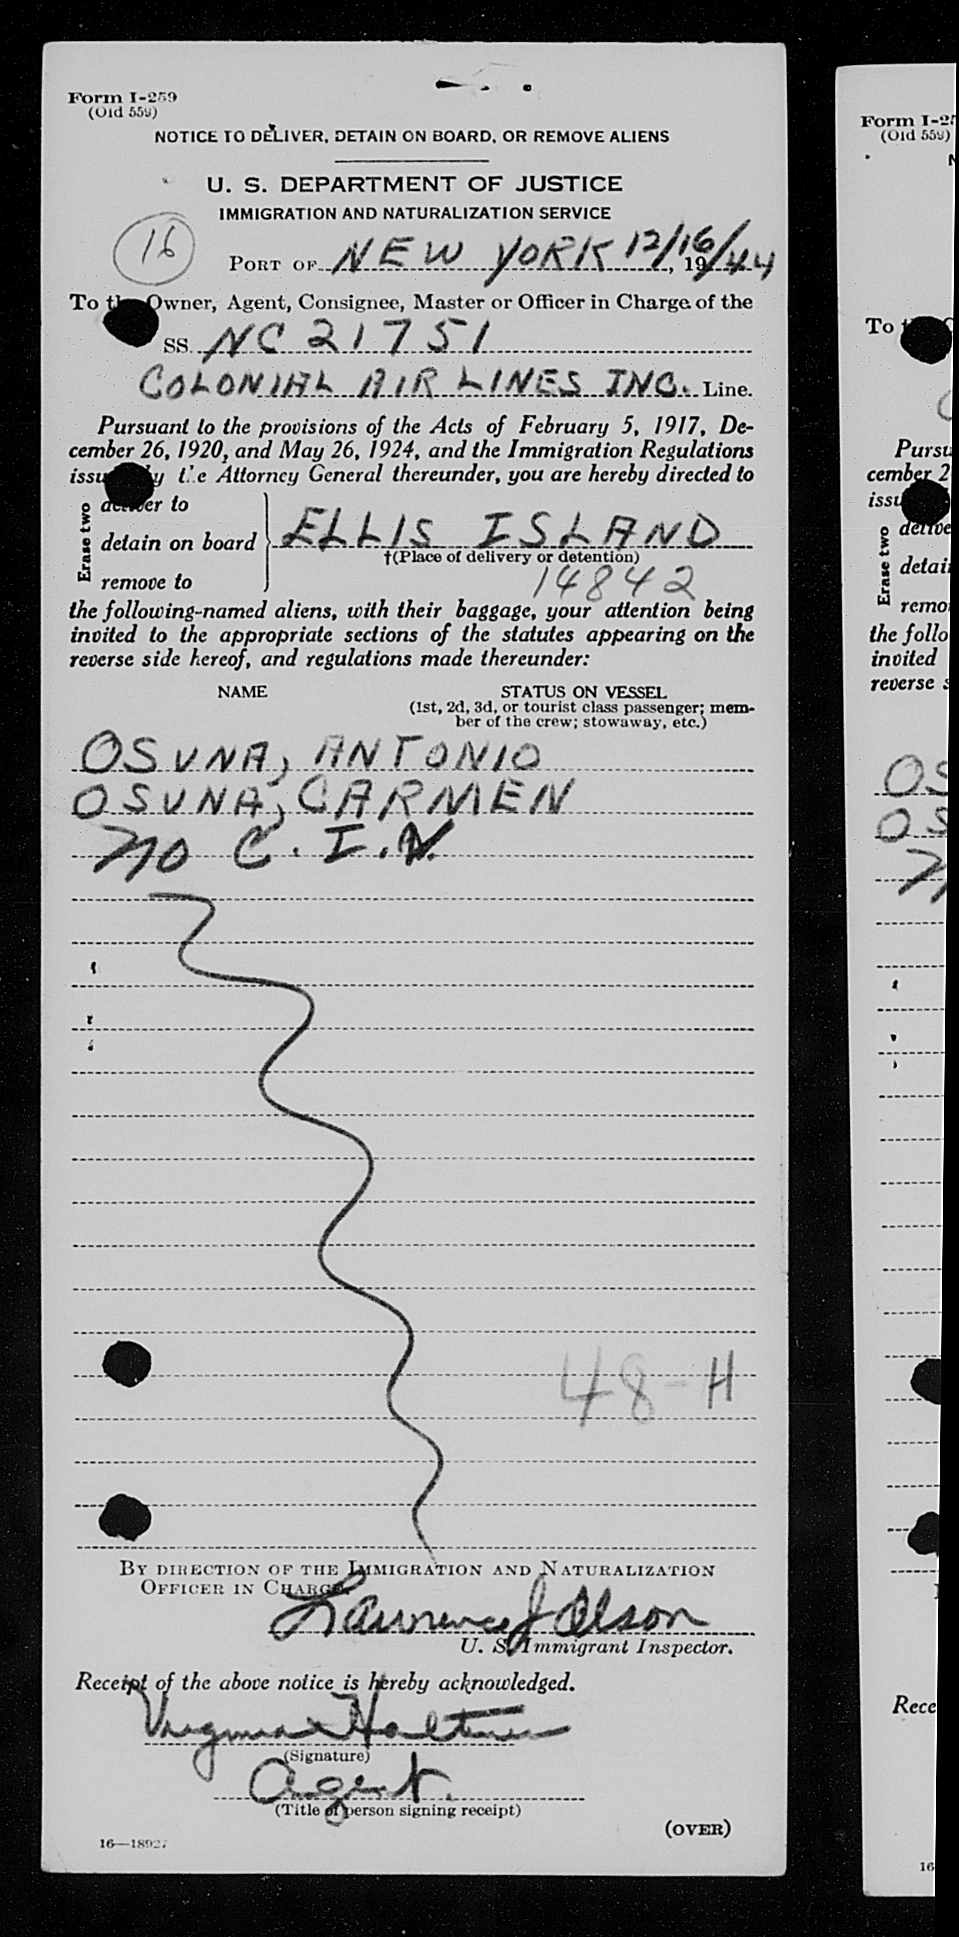 Form I-259
(Old 559)
NOTICE TO DELIVER, DETAIN ON BOARD, OR REMOVE ALIENS
U. S. DEPARTMENT OF JUSTICE
IMMIGRATION AND NATURALIZATION SERVICE
16
PORT OF NEW YORK 12/16/44, 19
To the Owner, Agent, Consignee, Master or Officer in Charge of the
SS. NC 21751
COLONIAL AIR LINES INC. Line.
Pursuant to the provisions of the Acts of February 5, 1917, De-
cember 26, 1920, and May 26, 1924, and the Immigration Regulations
issued by the Attorney General thereunder, you are hereby directed to
Erase two
deliver to
detain on board
remove to
ELLIS ISLAND
†(Place of delivery or detention)
14842
the following-named aliens, with their baggage, your attention being
invited to the appropriate sections of the statutes appearing on the
reverse side hereof, and regulations made thereunder:
NAME
STATUS ON VESSEL
(1st, 2d, 3d, or tourist class passenger; mem-
ber of the crew; stowaway, etc.)
OSUNA, ANTONIO
OSUNA, CARMEN
no C. I. N.
48-H
BY DIRECTION OF THE IMMIGRATION AND NATURALIZATION
OFFICER IN CHARGE.
Lawrence J Olson
U. S. Immigrant Inspector.
Receipt of the above notice is hereby acknowledged.
Virginia
(Signature)
Agent.
(Title of person signing receipt)
(OVER)
16—18927
Form I-25
(Old 559)
N
To
Pursu
cember 2
issu
Erase two
delive
detai
remo
the follo
invited
reverse s
OS
OS
n
Rece
16